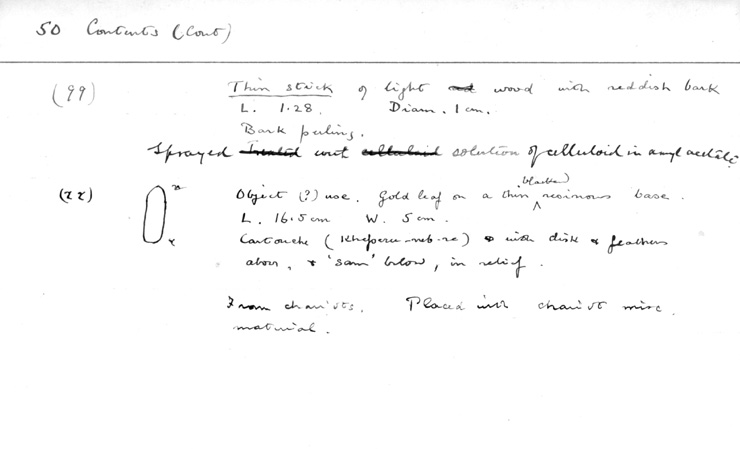 50 Contents (Cont)
(qq) Thin stick of light and wood with reddish bark
L. 1.28. Diam. 1 cm.
Bark peeling.
Sprayed Treated with celluloid solution of celluloid in amyl acetate
blackened
(rr) Object (?) use. Gold leaf on a thin resinous base.
L. 16.5 cm W. 5 cm.
Cartouche (Kheperu-neb-re) with disk & feathers
above, & 'sam' below, in relief.
From chariots. Placed with chariot misc.
material.